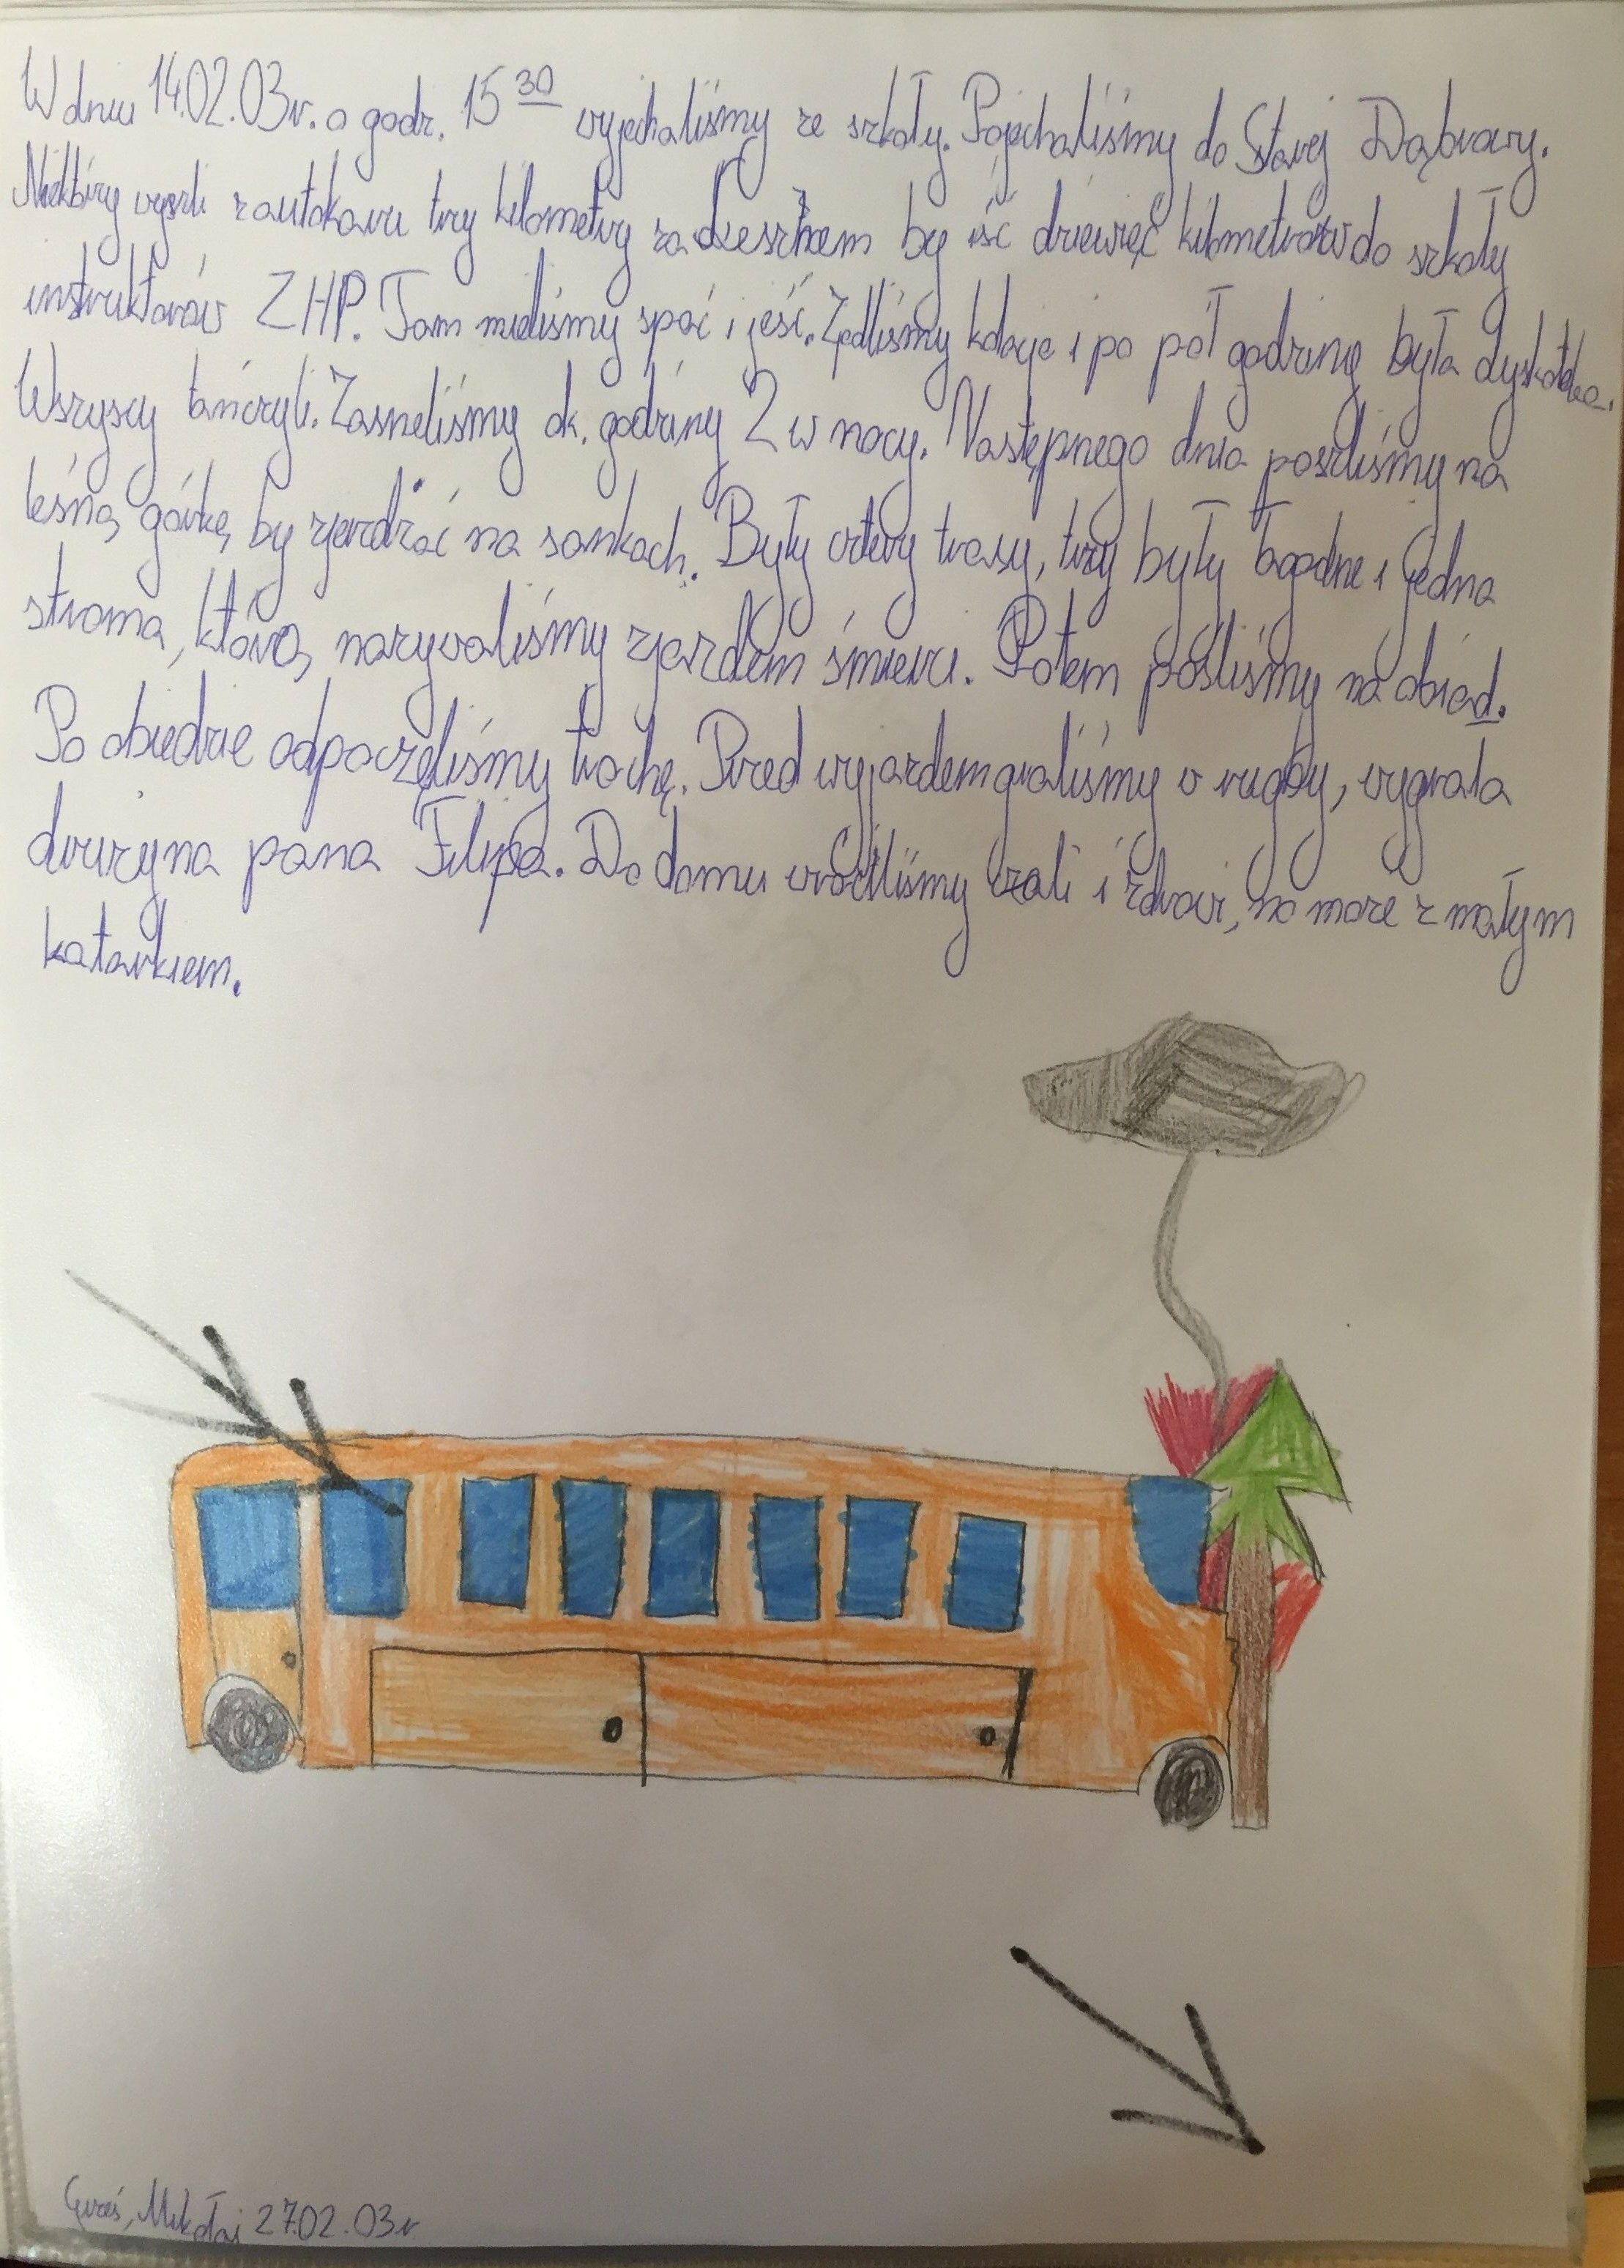 W dniu 14.02.03r. o godz. 15 30 wyjechaliśmy ze szkoły. Pojechaliśmy do Starej Dąbrowy.
Niektórzy wyszli z autokaru trzy kilometry za by iść dziewięć kilometrów do szkoły
instruktorów ZHP. Tam mieliśmy spać i jeść. Zjedliśmy kolacje i po pół godziny była dyskoteka.
Wszyscy tańczyli. Zasneliśmy ok. godziny 2 w nocy. Następnego dnia poszliśmy na
leśną górkę by zjerdżać na sankach. Były cztery trasy, trzy były łagodne i jedna
stroma, którą nazywaliśmy zjazdem śmierci. Potem pośliśmy na obiad.
Po obiedzie odpoczęliśmy trochę. Przed wyjazdem graliśmy w rugby, wygrała
drużyna pana Filipa. Do domu wróciliśmy cali i zdrowi, no może z małym
katarkiem.
Mikołaj 27.02.03r